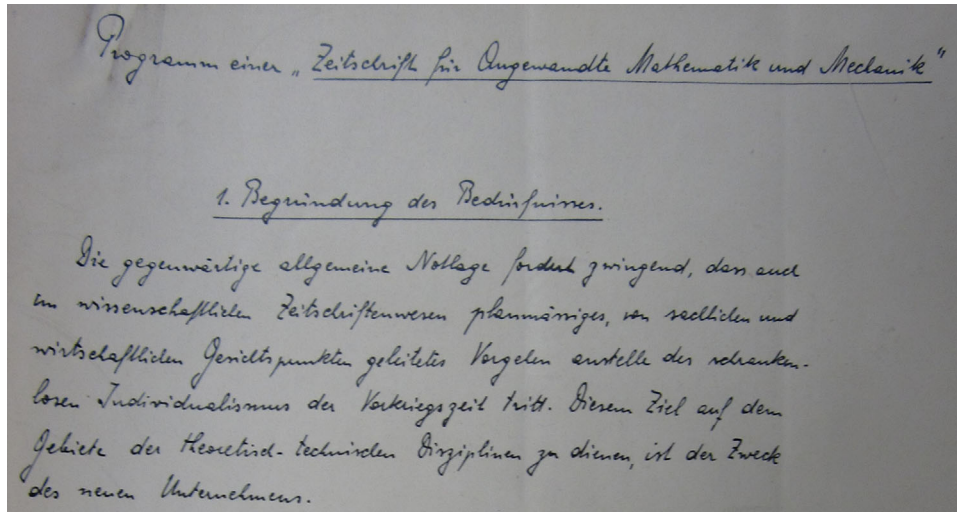 Programm einer „Zeitschrift für Angewandte Mathematik und Mechanik“
1. Begründung des Bedürfnisses.
Die gegenwärtige allgemeine Notlage fordert zwingend, dass auch
im wissenschaftlichen Zeitschriftenwesen planmässiges, von sachlichen und
wirtschaftlichen Gesichtspunkten geleitetes Vorgehen anstelle des schranken-
losen Individualismus der Vorkriegszeit tritt. Diesem Ziel auf dem
Gebiete der theoretisch-technischen Disziplinen zu dienen, ist der Zweck
des neuen Unternehmens.